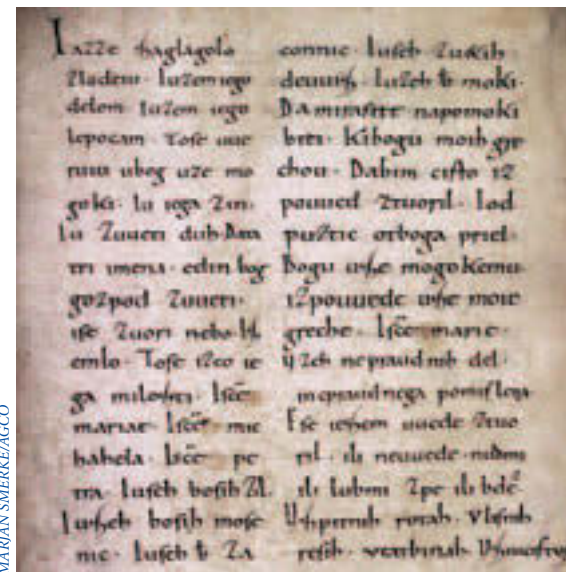 Iazze zaglagolo
zlodeiu. Iuzem iego
delom Iuzem iego
lepocam. Tose uue
ruiu ubog uze mo
goki. Iu iega zin.
Iu zuueti duh. Da ta
tri imena. edin bog
gozpod zuueti.
ise zuori nebo. Iz
emlo. Tose izco ie
ga milosti. Isce
mariae. Isce mic
hahela. Isce pe
tra. Iuseh bosih zl.
Iuseh bosih mose
nic. Iuseh b za
connic. Iuseh zuetih
deuuiz. Iuzeh b moki.
Da mi raste napomoki
biti. Kibogu moih gre
chou. Dabim cisto iz
pouued ztuoril. Iod
puztic otboga priel.
Bogu use mogokemu
izpouuede use moie
greche. Isce marie.
uzeh nepraudnih del.
inepraudnega pomislena
Ese iesem uuede ztuo
ril. ili neuuede. nudmi
ili lubmi zpe ili bde
Uzpitnih rotah. Vlisnih
resih. Vtatbinah.
MARJAN SMERKE/AGCO